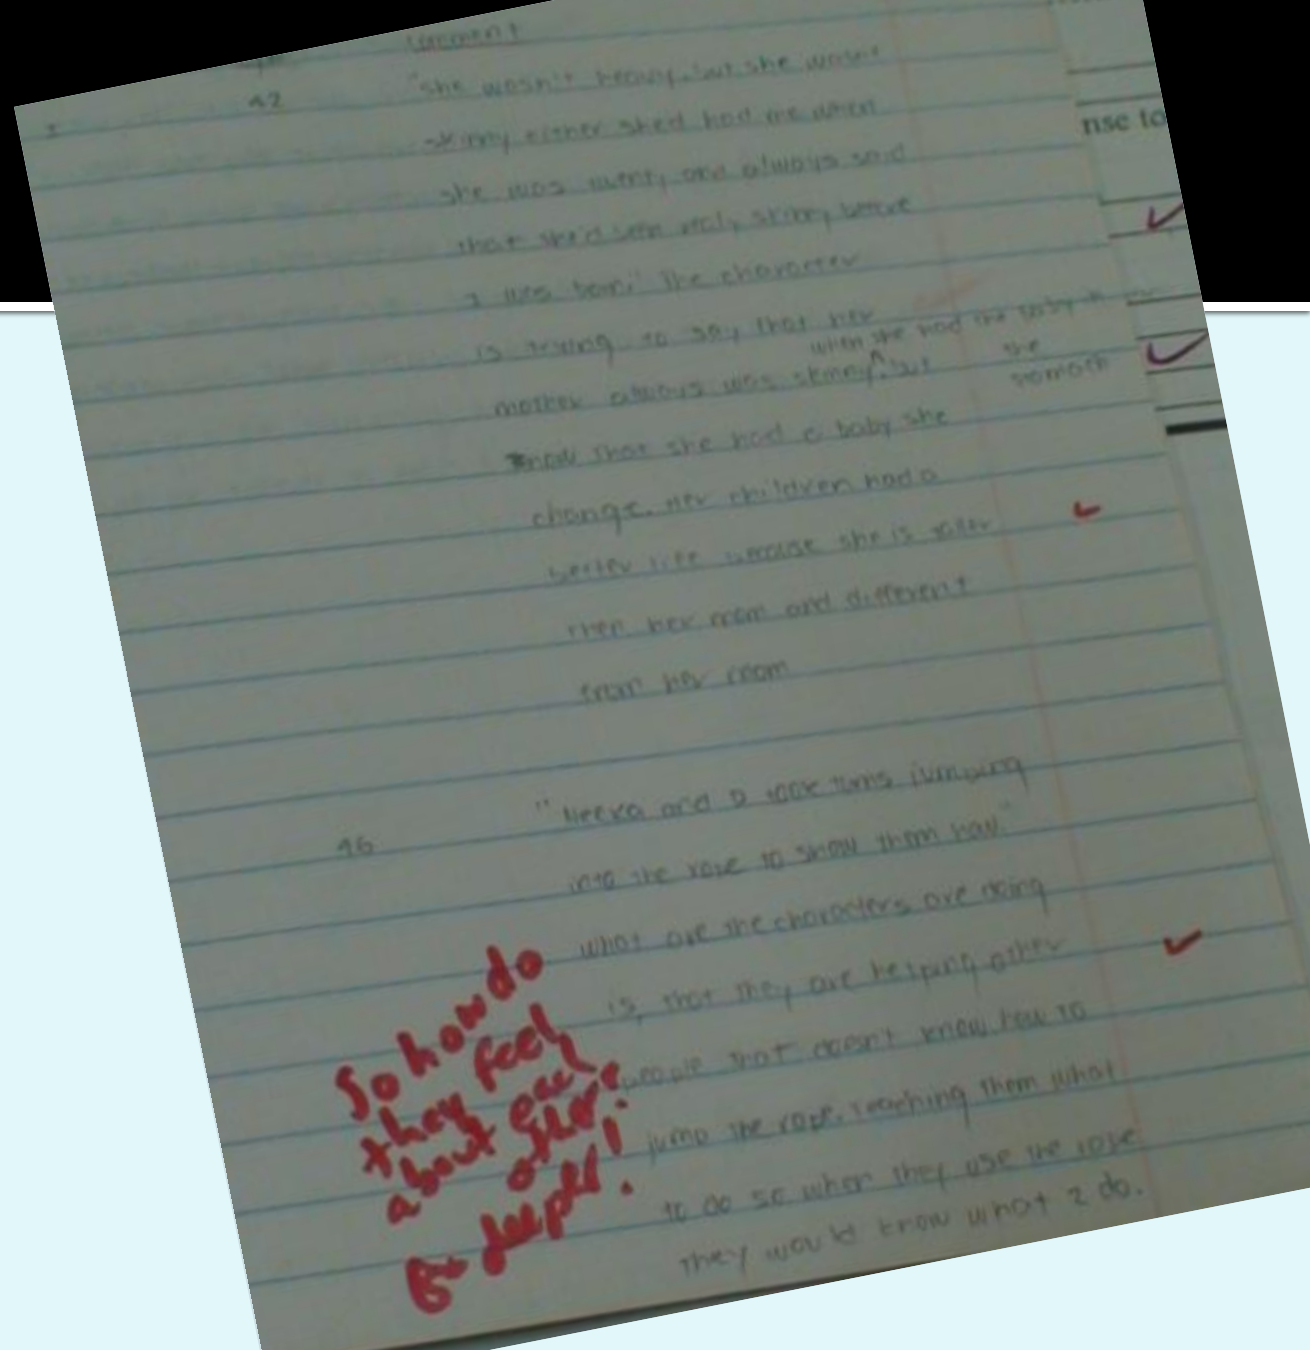 comment
42
"she wasn't heavy, but she wasn't
skinny either she'd had me when
she was twenty and always said
that she'd been really skinny before
I was born." The character
is trying to say that her
when she had the baby in
the
stomach
mother always was skinny, but
now that she had a baby she
change. Her children had a
better life because she is taller
then her mom and different
from her mom
46
"Neeka and D took turns jumping
into the rope to show them how."
what are the characters are doing
is, that they are helping other
people that doesn't know how to
jump the rope. teaching them what
to do so when they use the rope
they would know what 2 do.
So how do
they feel
about each
other?
Be deeper!
nse to